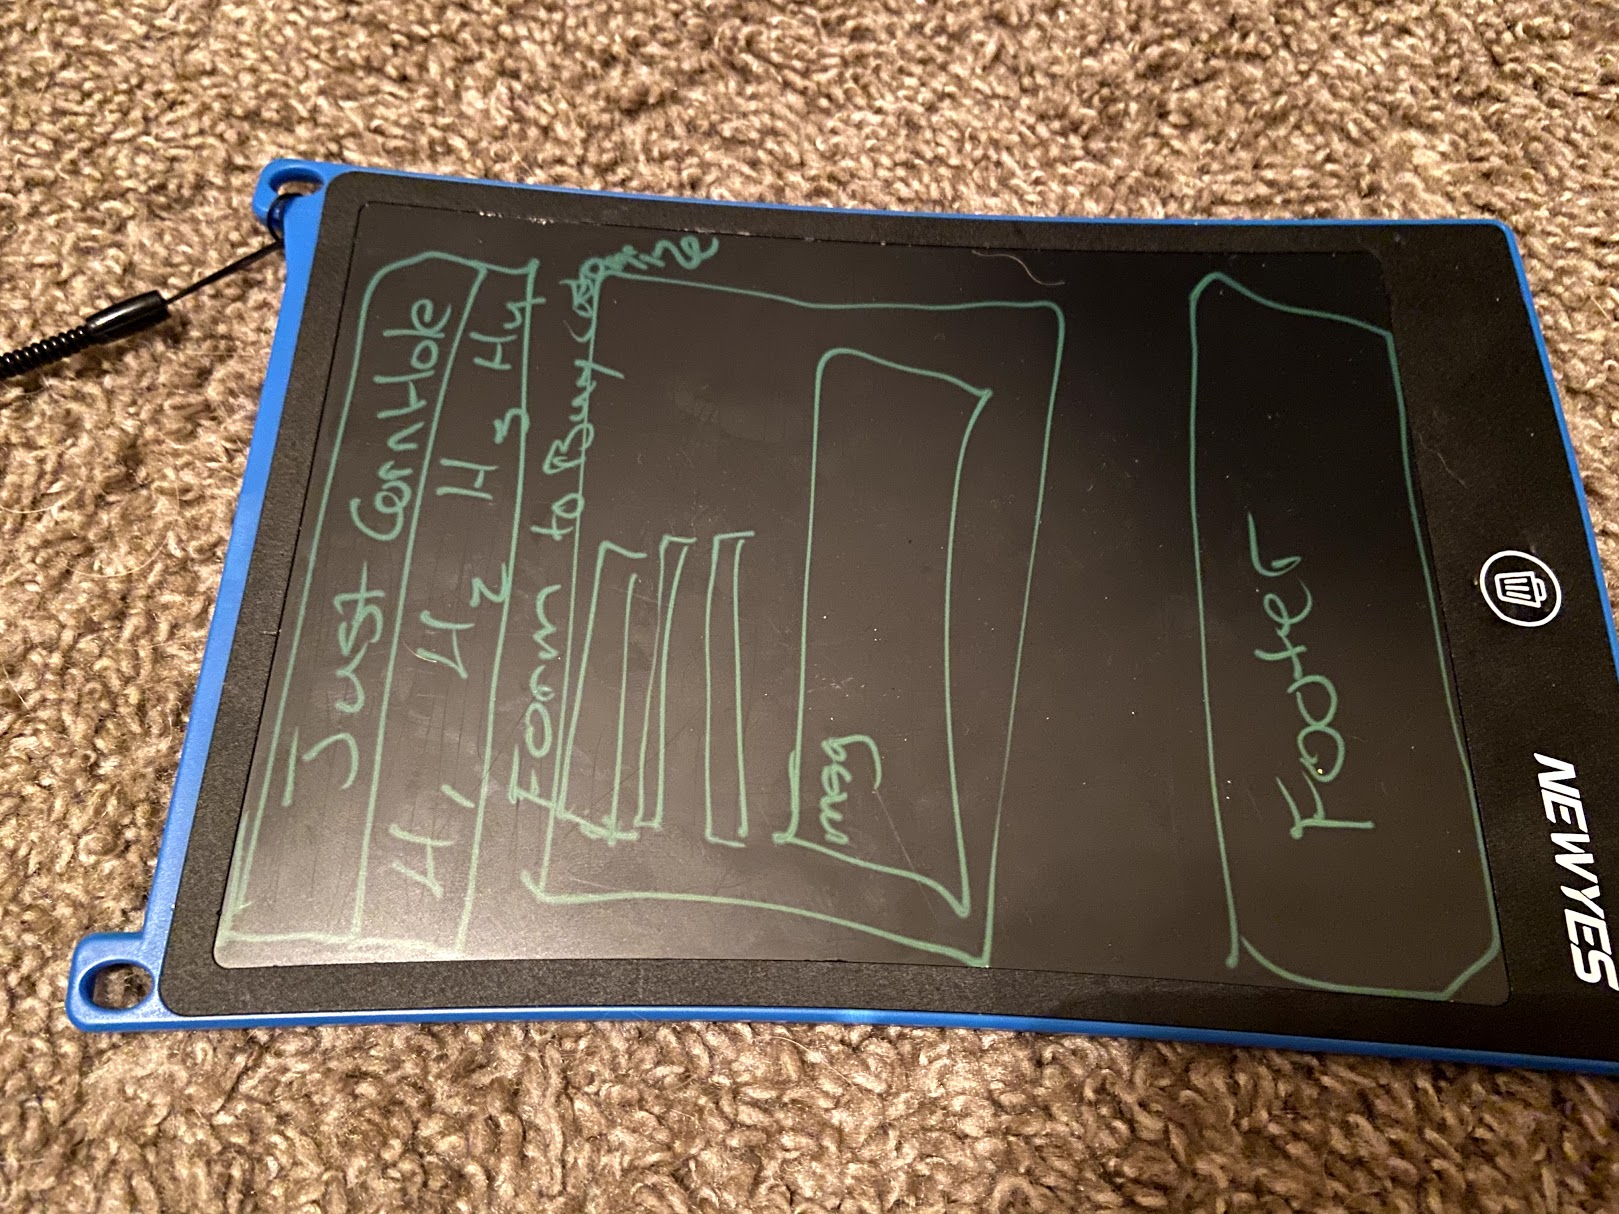 Just CornHole
H1 H2 H3 H4
Form to Buy
msg
Footer
NEWYES